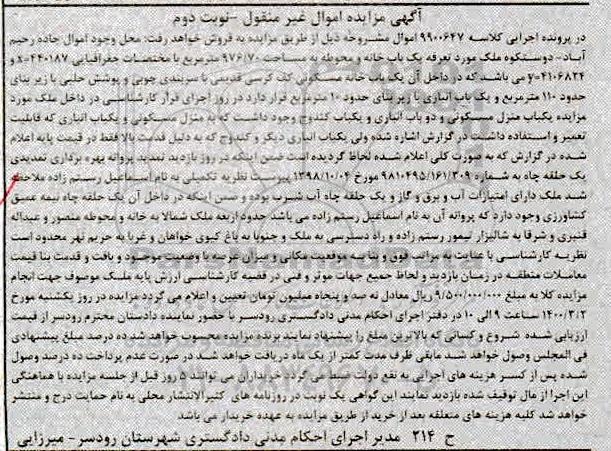 آگهی مزایده اموال غیر منقول -نوبت دوم
در پرونده اجرایی کلاسه ۹۹۰۰۶۴۷ اموال مشروحه ذیل از طریق مزایده به فروش خواهد رفت: محل وجود اموال جاده رحیم
آباد- دوستکوه ملک مورد تعرفه یک باب خانه و محوطه به مساحت ۹۷۶/۷۰ مترمربع با مختصات جغرافیایی x=۴۴۰۱۸۷ و
y=۴۱۰۶۸۲۴ می باشد که در داخل آن یک باب خانه مسکونی کلت کرسی قدیمی با سربندی چوبی و پوشش حلبی با زیر بنای
حدود ۱۱۰ مترمربع و یک باب انباری با زیر بنای حدود ۱۰ مترمربع قرار دارد در روز اجرای قرار کارشناسی در داخل ملک مورد
مزایده یکباب منزل مسکونی و دو باب انباری و یکباب کندوج وجود داشت که به منزل مسکونی و یکباب انباری که قابلیت
تعمیر و استفاده داشت در گزارش اشاره شده ولی یکباب انباری دیگر و کندوج که به دلیل قدمت بالا فقط در قیمت پایه اعلام
شده در گزارش که به صورت کلی اعلام شده لحاظ گردیده است ضمن اینکه در روز بازدید تمدید پروانه بهره برداری تمدیدی
یک حلقه چاه به شماره ۹۸۱۰۴۹۵/۱۶۱/۳۰۹ مورخ ۱۳۹۸/۱۰/۰۴ پیوست نظریه تکمیلی به نام اسماعیل رستم زاده ملاحظه
شد ملک دارای امتیازات آب و برق و گاز و یک حلقه چاه آب شرب بوده و ضمن اینکه در داخل آن یک حلقه چاه نیمه عمیق
کشاورزی وجود دارد که پروانه آن به نام اسماعیل رستم زاده می باشد حدود اربعه ملک شمالا به خانه و محوطه منصور و عبداله
قنبری و شرقا به شالیزار تیمور رستم زاده و راه دسترسی به ملک و جنوبا به باغ کیوی خواهان و غربا به حریم نهر محدود است
نظریه کارشناسی با عنایت به مراتب فوق و بنا به موقعیت مکانی و میزان عرصه با وضعیت موجود و بافت و قدمت بنا قیمت
معاملات منطقه در زمان بازدید و لحاظ جمیع جهات موثر و فنی در قضیه کارشناسی ارزش پایه ملک موصوف جهت انجام
مزایده کلا به مبلغ ۹/۵۰۰/۰۰۰/۰۰۰ ریال معادل نه صد و پنجاه میلیون تومان تعیین و اعلام می گردد مزایده در روز یکشنبه مورخ
۱۴۰۰/۳/۲ ساعت ۹ الی ۱۰ در دفتر اجرای احکام مدنی دادگستری رودسر با حضور نماینده دادستان محترم رودسر از قیمت
ارزیابی شده شروع و کسانی که بالاترین مبلغ را پیشنهاد نمایند برنده مزایده محسوب خواهد شد ده درصد مبلغ پیشنهادی
فی المجلس وصول خواهد شد مابقی ظرف مدت کمتر از یک ماه دریافت خواهد شد در صورت عدم پرداخت ده درصد وصول
شده پس از کسر هزینه های اجرایی به نفع دولت ضبط می گردد خریداران می توانند ۵ روز قبل از جلسه مزایده با هماهنگی
این اجرا از مال توقیف شده بازدید نمایند این گواهی یک نوبت در روزنامه های کثیرالانتشار محلی به نام حمایت درج و منتشر
خواهد شد کلیه هزینه های متعلقه بعد از خرید از طریق مزایده به عهده خریدار می باشد
ح ۲۱۴ مدیر اجرای احکام مدنی دادگستری شهرستان رودسر- میرزایی